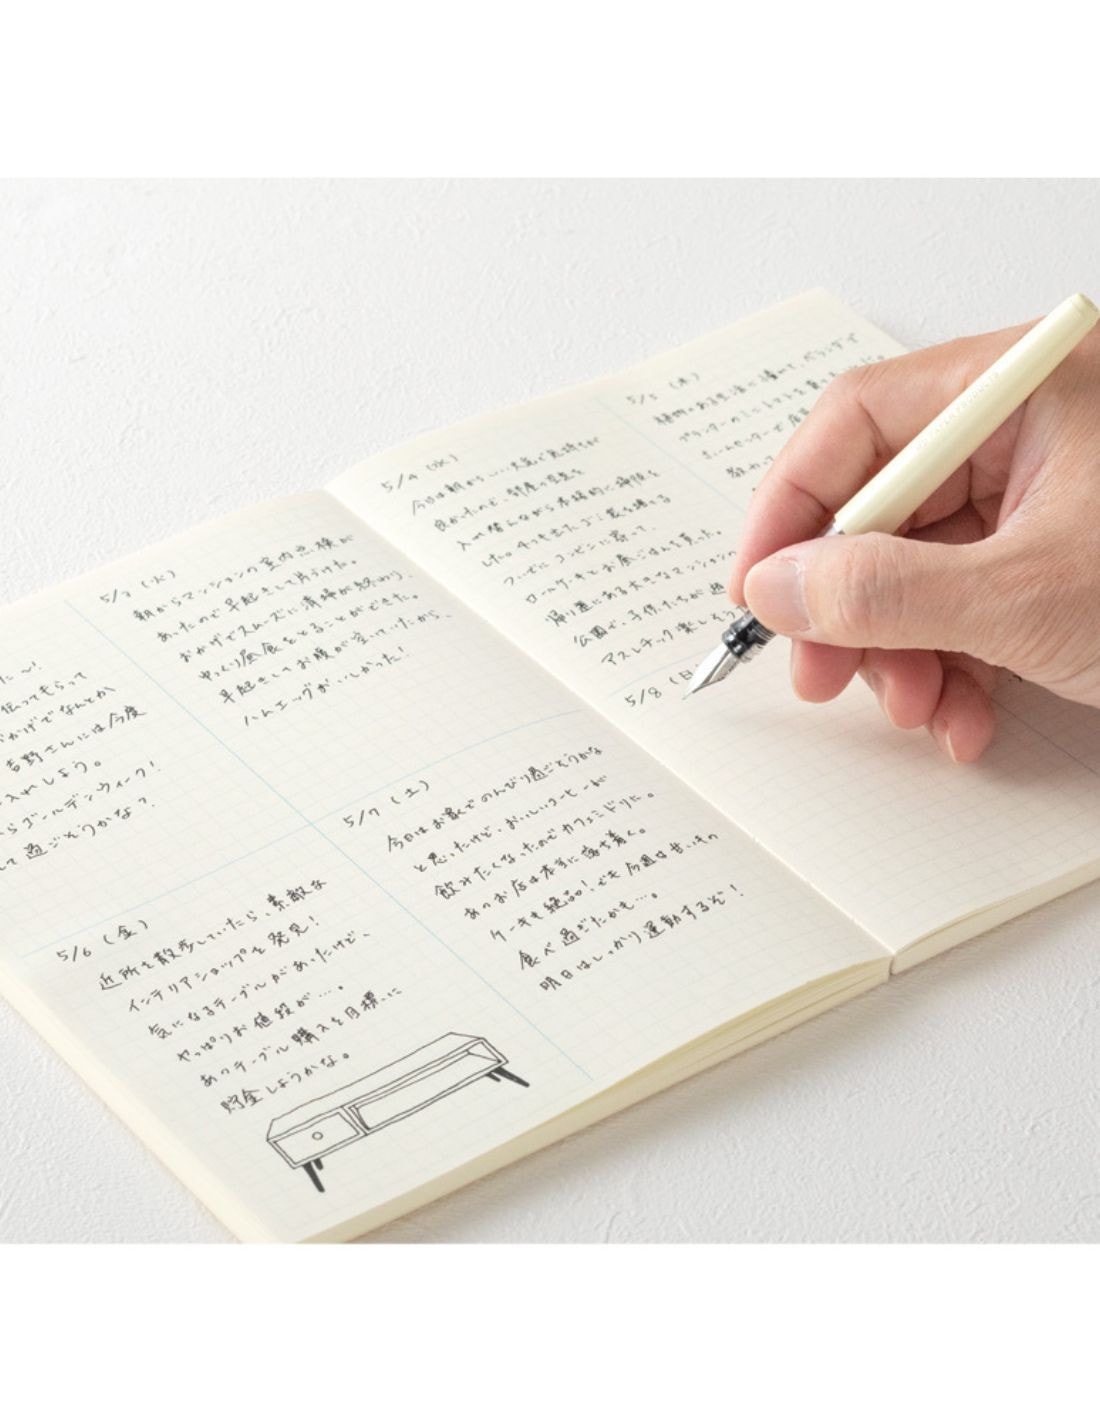 た〜!
伝ってもらって
おかげでなんとか
吉野さんには今度
入れしよう。
らゴールデンウィーク!
して過ごそうかな?
5/3 (火)
朝からマンションの室内点検が
あったので早起きして片づけた。
おかげでスムーズに清掃が終わり、
ゆっくり昼食をとることができた。
早起きしてお腹が空いていたから、
ハムエッグがおいしかった!
5/4 (水)
今日は朝からいい天気で気持ちが
良かったので、部屋の空気を
入れ替えながら本格的に掃除を
した。たくさん出たゴミ袋を捨てる
ついでにコンビニに寄って、
ロールケーキとお昼ごはんを買った。
帰り道にある大きなマンションの
公園で、子供たちが遊
アスレチック楽しそう
5/5 (木)
植物のある生活に憧れて、ベランダで
プランターのミニトマトを
ホームセンターで店員
教わって
5/6 (金)
近所を散歩していたら、素敵な
インテリアショップを発見!
気になるテーブルがあったけど、
やっぱりお値段が…。
あのテーブル購入を目標に
貯金しようかな。
5/7 (土)
今日はお家でのんびり過ごそうかな
と思ったけど、おいしいコーヒーが
飲みたくなったのでカフェミドリに。
あのお店は本当に落ち着く。
ケーキも絶品!でも今週は甘いもの
食べ過ぎたかも…。
明日はしっかり運動するぞ!
5/8 (日